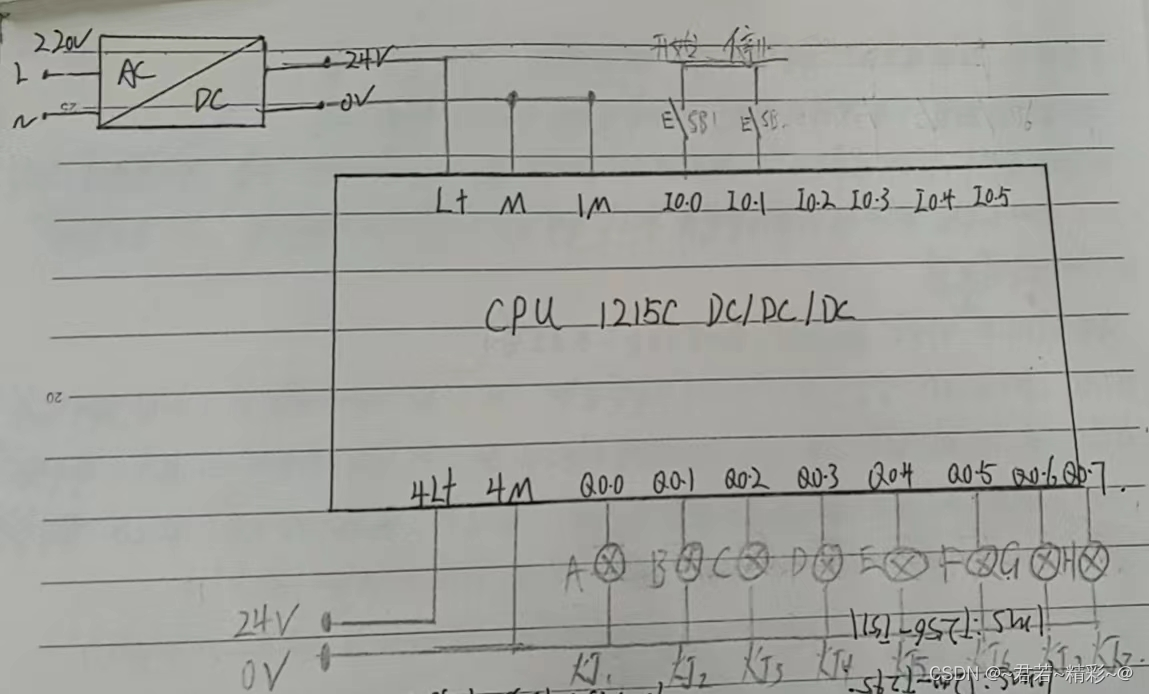 220V
L
N
AC
DC
24V
0V
开始 停止
E SB1 E SB
L+ M 1M I0.0 I0.1 I0.2 I0.3 I0.4 I0.5
CPU 1215C DC/DC/DC
20
4L+ 4M Q0.0 Q0.1 Q0.2 Q0.3 Q0.4 Q0.5 Q0.6 Q0.7
A B C D E F G H
24V
0V
1ms:T256~T511
KJ1 KJ2 KJ3 KJ4
CSDN @~君若~精彩~@